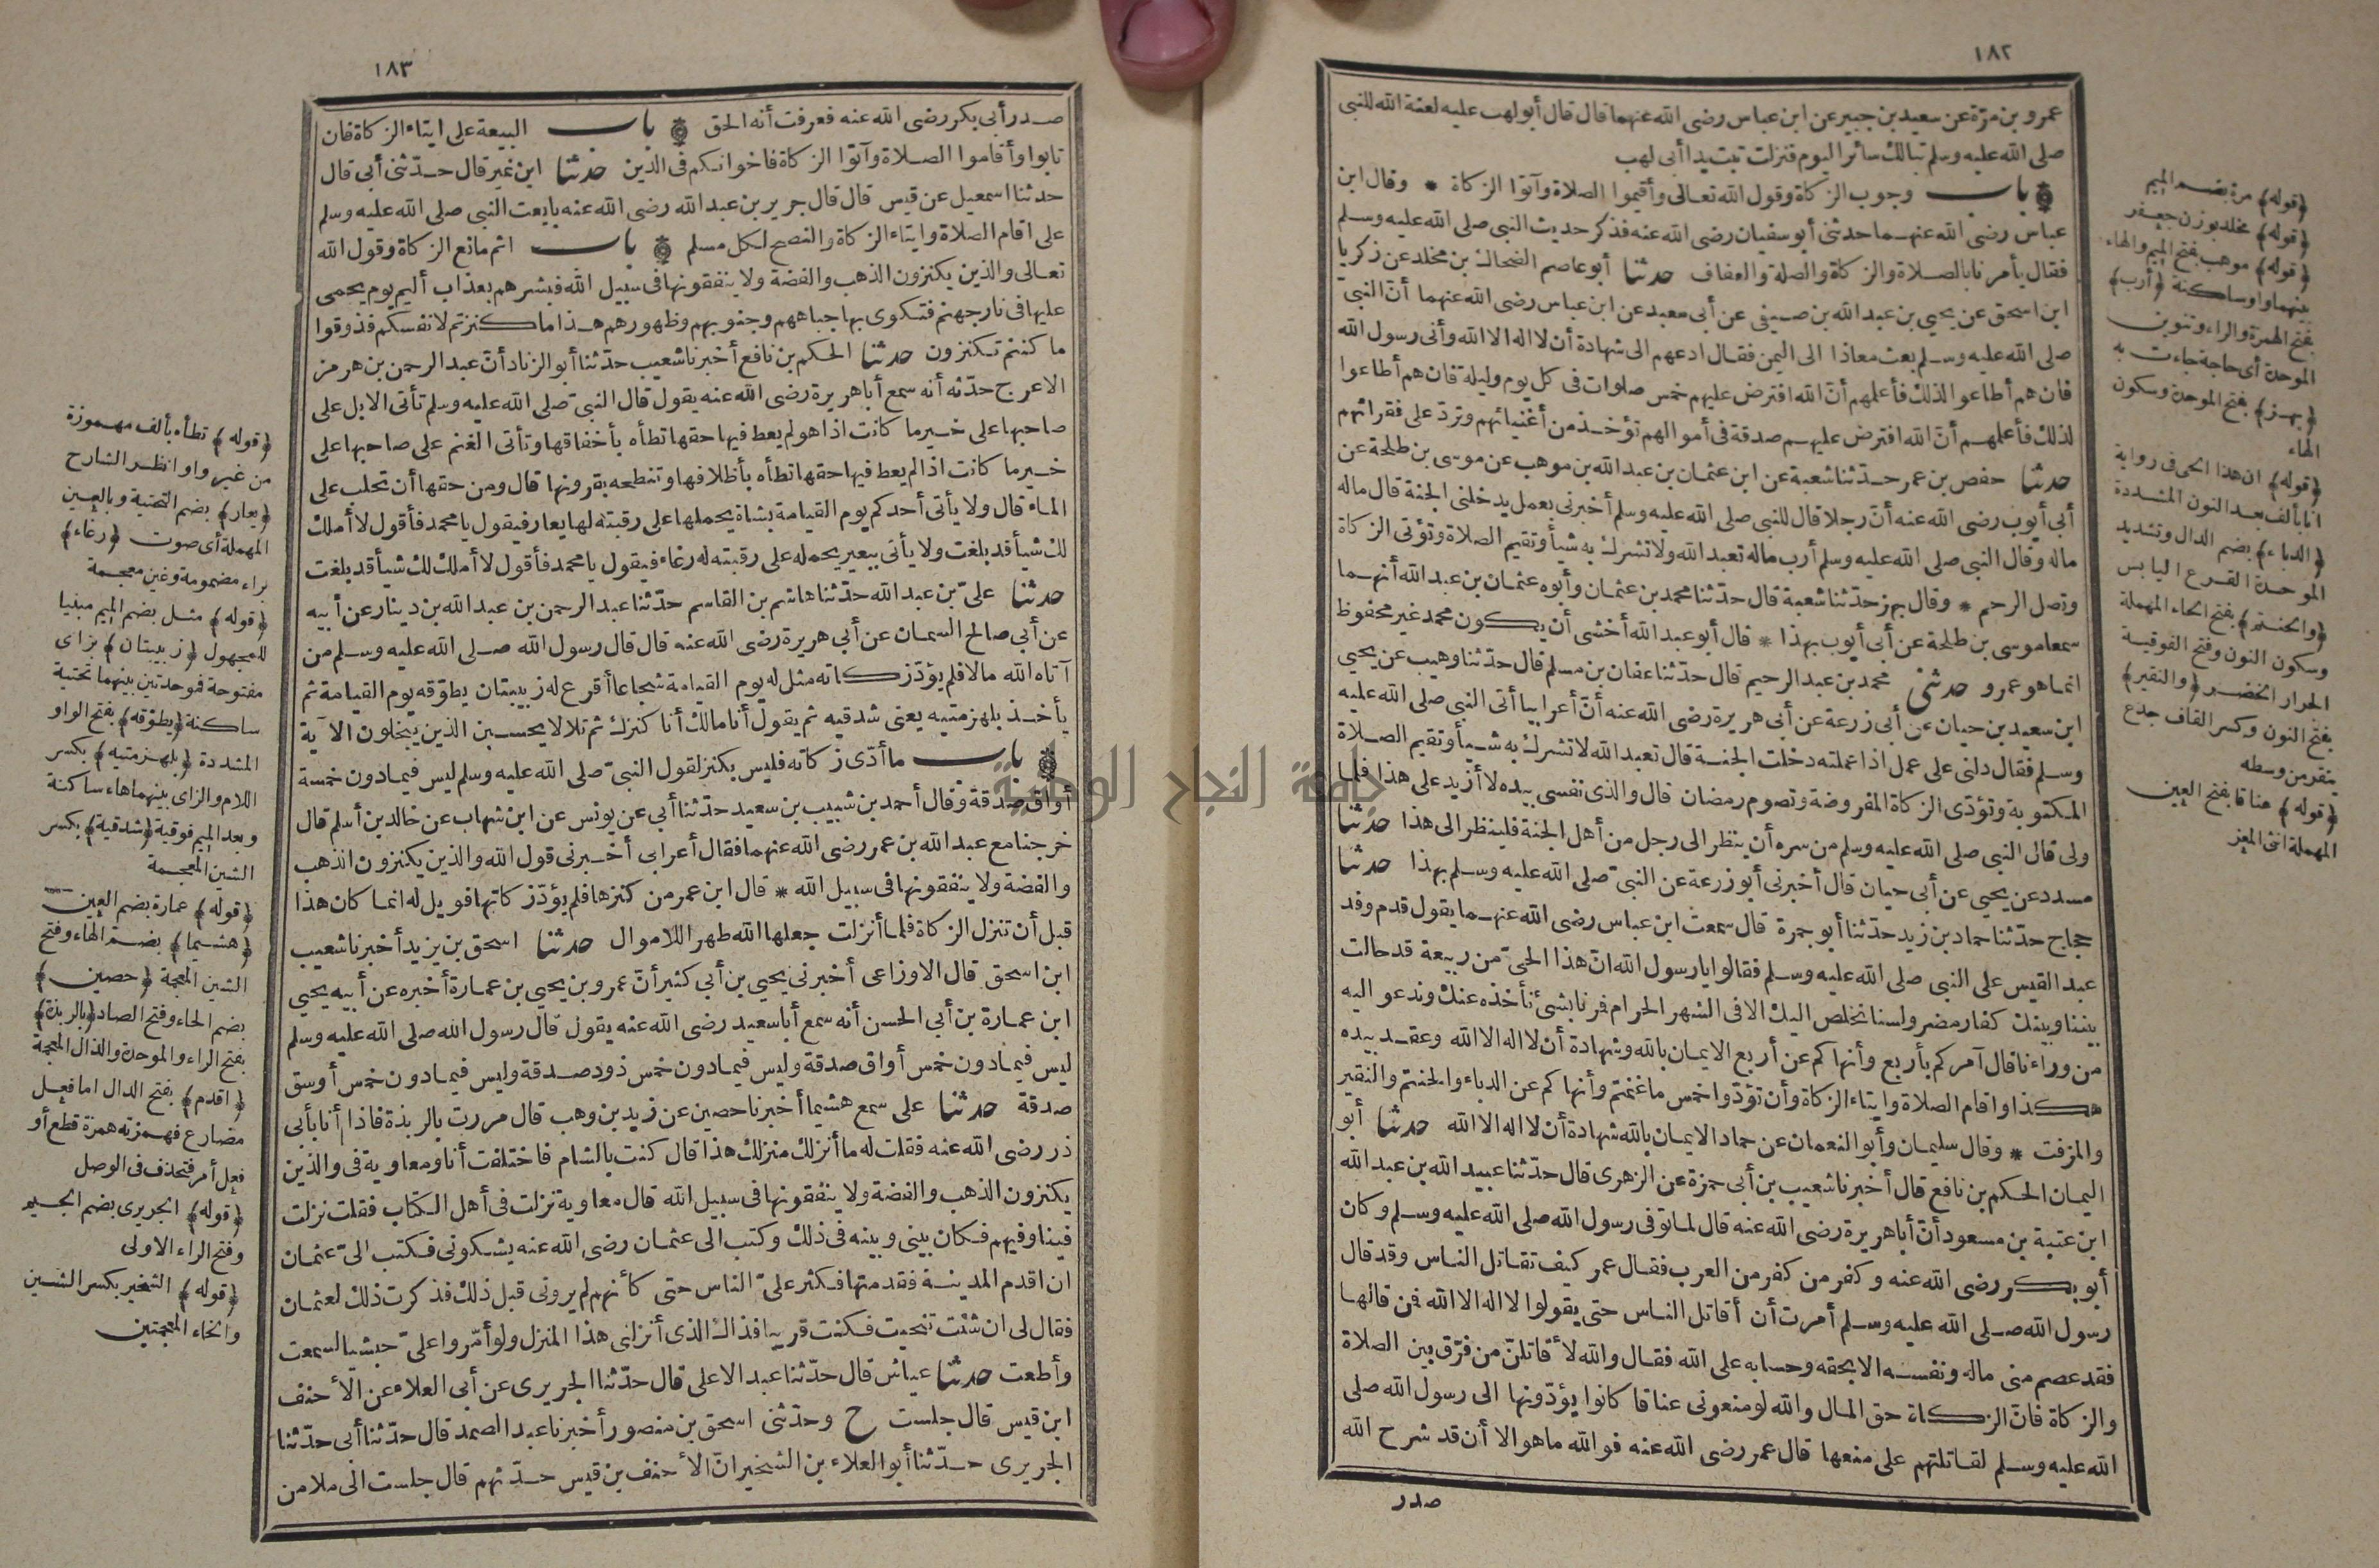 ١٨٢
عمرو بن مرّة عن سعيد بن جبير عن ابن عباس رضى الله عنهما قال قال أبو لهب عليه لعنة الله للنبى
صلى الله عليه وسلم تبا لك سائر اليوم فنزلت تبت يدا أبى لهب
باب وجوب الزكاة وقول الله تعالى وأقيموا الصلاة وآتوا الزكاة * وقال ابن
عباس رضى الله عنهما حدثنى أبو سفيان رضى الله عنه فذكر حديث النبى صلى الله عليه وسلم
فقال يأمرنا بالصلاة والزكاة والصلة والعفاف حدثنا أبو عاصم الضحاك بن مخلد عن زكريا
ابن اسحق عن يحيى بن عبد الله بن صيفى عن أبى معبد عن ابن عباس رضى الله عنهما أنّ النبى
صلى الله عليه وسلم بعث معاذا الى اليمن فقال ادعهم الى شهادة أن لا اله الا الله وأنى رسول الله
فان هم أطاعوا لذلك فأعلمهم أنّ الله افترض عليهم خمس صلوات فى كل يوم وليلة فان هم أطاعوا
لذلك فأعلمهم أنّ الله افترض عليهم صدقة فى أموالهم تؤخذ من أغنيائهم وتردّ على فقرائهم
حدثنا حفص بن عمر حدّثنا شعبة عن ابن عثمان بن عبد الله بن موهب عن موسى بن طلحة عن
أبى أيوب رضى الله عنه أنّ رجلا قال للنبى صلى الله عليه وسلم أخبرنى بعمل يدخلنى الجنة قال ماله
ماله وقال النبى صلى الله عليه وسلم أرب ماله تعبد الله ولا تشرك به شيأ وتقيم الصلاة وتؤتى الزكاة
وتصل الرحم * وقال بهز حدّثنا شعبة قال حدّثنا محمد بن عثمان وأبوه عثمان بن عبد الله أنهما
سمعا موسى بن طلحة عن أبى أيوب بهذا * قال أبو عبد الله أخشى أن يكون محمد غير محفوظ
انما هو عمرو حدثنى محمد بن عبد الرحيم قال حدّثنا عفان بن مسلم قال حدّثنا وهيب عن يحيى
ابن سعيد بن حيان عن أبى زرعة عن أبى هريرة رضى الله عنه أنّ أعرابيا أتى النبى صلى الله عليه
وسلم فقال دلنى على عمل اذا عملته دخلت الجنة قال تعبد الله لا تشرك به شيأ وتقيم الصلاة
المكتوبة وتؤدّى الزكاة المفروضة وتصوم رمضان قال والذى نفسى بيده لا أزيد على هذا فلما
ولى قال النبى صلى الله عليه وسلم من سره أن ينظر الى رجل من أهل الجنة فلينظر الى هذا حدثنا
مسدد عن يحيى عن أبى حيان قال أخبرنى أبو زرعة عن النبىّ صلى الله عليه وسلم بهذا حدثنا
حجاج حدّثنا حماد بن زيد حدّثنا أبو جمرة قال سمعت ابن عباس رضى الله عنهما يقول قدم وفد
عبد القيس على النبى صلى الله عليه وسلم فقالوا يا رسول الله انّ هذا الحىّ من ربيعة قد حالت
بيننا وبينك كفار مضر ولسنا نخلص اليك الا فى الشهر الحرام فمرنا بشئ نأخذه عنك وندعو اليه
من وراءنا قال آمركم بأربع وأنهاكم عن أربع الايمان بالله وشهادة أن لا اله الا الله وعقد بيده
هكذا واقام الصلاة وايتاء الزكاة وأن تؤدّوا خمس ما غنمتم وأنهاكم عن الدباء والحنتم والنقير
والمزفت * وقال سليمان وأبو النعمان عن حماد الايمان بالله شهادة أن لا اله الا الله حدثنا أبو
اليمان الحكم بن نافع قال أخبرنا شعيب بن أبى حمزة عن الزهرى قال حدّثنا عبيد الله بن عبد الله
ابن عتبة بن مسعود أنّ أبا هريرة رضى الله عنه قال لما توفى رسول الله صلى الله عليه وسلم وكان
أبو بكر رضى الله عنه وكفر من كفر من العرب فقال عمر كيف تقاتل الناس وقد قال
رسول الله صلى الله عليه وسلم أمرت أن أقاتل الناس حتى يقولوا لا اله الا الله فمن قالها
فقد عصم منى ماله ونفسه الا بحقه وحسابه على الله فقال والله لأقاتلنّ من فرّق بين الصلاة
والزكاة فانّ الزكاة حق المال والله لو منعونى عناقا كانوا يؤدّونها الى رسول الله صلى
الله عليه وسلم لقاتلتهم على منعها قال عمر رضى الله عنه فوالله ما هو الا أن قد شرح الله
صدر
(قوله) مرة بضم الميم
(قوله) مخلد بوزن جعفر
(قوله) موهب بفتح الميم والهاء
بينهما واو ساكنة (أرب)
بفتح الهمزة والراء وتنوين
الموحدة أى حاجة جاءت به
(بهز) بفتح الموحدة وسكون
الهاء
(قوله) ان هذا الحى فى رواية
انا بألف بعد النون المشددة
(الدباء) بضم الدال وتشديد
الموحدة القرع اليابس
(والحنتم) بفتح الحاء المهملة
وسكون النون وفتح الفوقية
الجرار الخضر (والنقير)
بفتح النون وكسر القاف جذع
ينقر من وسطه
(قوله) عناقا بفتح العين
المهملة انثى المعز
١٨٣
صدر أبى بكر رضى الله عنه فعرفت أنه الحق باب البيعة على ايتاء الزكاة فان
تابوا وأقاموا الصلاة وآتوا الزكاة فاخوانكم فى الدين حدثنا ابن نمير قال حدّثنى أبى قال
حدثنا اسمعيل عن قيس قال قال جرير بن عبد الله رضى الله عنه بايعت النبى صلى الله عليه وسلم
على اقام الصلاة وايتاء الزكاة والنصح لكل مسلم باب اثم مانع الزكاة وقول الله
تعالى والذين يكنزون الذهب والفضة ولا ينفقونها فى سبيل الله فبشرهم بعذاب أليم يوم يحمى
عليها فى نار جهنم فتكوى بها جباههم وجنوبهم وظهورهم هذا ما كنزتم لانفسكم فذوقوا
ما كنتم تكنزون حدثنا الحكم بن نافع أخبرنا شعيب حدّثنا أبو الزناد أنّ عبد الرحمن بن هرمز
الاعرج حدّثه أنه سمع أبا هريرة رضى الله عنه يقول قال النبىّ صلى الله عليه وسلم تأتى الابل على
صاحبها على خير ما كانت اذا هو لم يعط فيها حقها تطأه بأخفافها وتأتى الغنم على صاحبها على
خير ما كانت اذا لم يعط فيها حقها تطأه بأظلافها وتنطحه بقرونها قال ومن حقها أن تحلب على
الماء قال ولا يأتى أحدكم يوم القيامة بشاة يحملها على رقبته لها يعار فيقول يا محمد فأقول لا أملك
لك شيأ قد بلغت ولا يأتى ببعير يحمله على رقبته له رغاء فيقول يا محمد فأقول لا أملك لك شيأ قد بلغت
حدثنا علىّ بن عبد الله حدّثنا هاشم بن القاسم حدّثنا عبد الرحمن بن عبد الله بن دينار عن أبيه
عن أبى صالح السمان عن أبى هريرة رضى الله عنه قال قال رسول الله صلى الله عليه وسلم من
آتاه الله مالا فلم يؤدّ زكاته مثل له يوم القيامة شجاعا أقرع له زبيبتان يطوّقه يوم القيامة ثم
يأخذ بلهزمتيه يعنى شدقيه ثم يقول أنا مالك أنا كنزك ثم تلا لا يحسبن الذين يبخلون الآية
باب ما أدّى زكاته فليس بكنز لقول النبىّ صلى الله عليه وسلم ليس فيما دون خمسة
أواق صدقة وقال أحمد بن شبيب بن سعيد حدّثنا أبى عن يونس عن ابن شهاب عن خالد بن أسلم قال
خرجنا مع عبد الله بن عمر رضى الله عنهما فقال أعرابى أخبرنى قول الله والذين يكنزون الذهب
والفضة ولا ينفقونها فى سبيل الله * قال ابن عمر من كنزها فلم يؤدّ زكاتها فويل له انما كان هذا
قبل أن تنزل الزكاة فلما أنزلت جعلها الله طهرا للاموال حدثنا اسحق بن يزيد أخبرنا شعيب
ابن اسحق قال الاوزاعى أخبرنى يحيى بن أبى كثير أنّ عمرو بن يحيى بن عمارة أخبره عن أبيه يحيى
ابن عمارة بن أبى الحسن أنه سمع أبا سعيد رضى الله عنه يقول قال رسول الله صلى الله عليه وسلم
ليس فيما دون خمس أواق صدقة وليس فيما دون خمس ذود صدقة وليس فيما دون خمس أوسق
صدقة حدثنا على سمع هشيما أخبرنا حصين عن زيد بن وهب قال مررت بالربذة فاذا أنا بأبى
ذر رضى الله عنه فقلت له ما أنزلك منزلك هذا قال كنت بالشام فاختلفت أنا ومعاوية فى والذين
يكنزون الذهب والفضة ولا ينفقونها فى سبيل الله قال معاوية نزلت فى أهل الكتاب فقلت نزلت
فينا وفيهم فكان بينى وبينه فى ذلك وكتب الى عثمان رضى الله عنه يشكونى فكتب الىّ عثمان
ان اقدم المدينة فقدمتها فكثر علىّ الناس حتى كأنهم لم يرونى قبل ذلك فذكرت ذلك لعثمان
فقال لى ان شئت تنحيت فكنت قريبا فذاك الذى أنزلنى هذا المنزل ولو أمّروا علىّ حبشيا لسمعت
وأطعت حدثنا عياش قال حدّثنا عبد الاعلى قال حدّثنا الجريرى عن أبى العلاء عن الأحنف
ابن قيس قال جلست ح وحدّثنى اسحق بن منصور أخبرنا عبد الصمد قال حدّثنا أبى حدّثنا
الجريرى حدّثنا أبو العلاء بن الشخير انّ الأحنف بن قيس حدّثهم قال جلست الى ملا من
(قوله) تطأه بألف مهموزة
من غير واو انظر الشارح
(يعار) بضم التحتية وبالعين
المهملة أى صوت (رغاء)
براء مضمومة وغين معجمة
(قوله) مثل بضم الميم مبنيا
للمجهول (زبيبتان) بزاى
مفتوحة فموحدتين بينهما تحتية
ساكنة (يطوّقه) بفتح الواو
المشددة (بلهزمتيه) بكسر
اللام والزاى بينهما هاء ساكنة
وبعد الميم فوقية (شدقيه) بكسر
الشين المعجمة
(قوله) عمارة بضم العين
(هشيما) بضم الهاء وفتح
الشين المعجمة (حصين)
بضم الحاء وفتح الصاد (بالربذة)
بفتح الراء والموحدة والذال المعجمة
(اقدم) بفتح الدال اما فعل
مضارع فهمزته همزة قطع أو
فعل أمر فتحذف فى الوصل
(قوله) الجريرى بضم الجيم
وفتح الراء الاولى
(قوله) الشخير بكسر الشين
والخاء المعجمتين
جامعة النجاح الوطنية